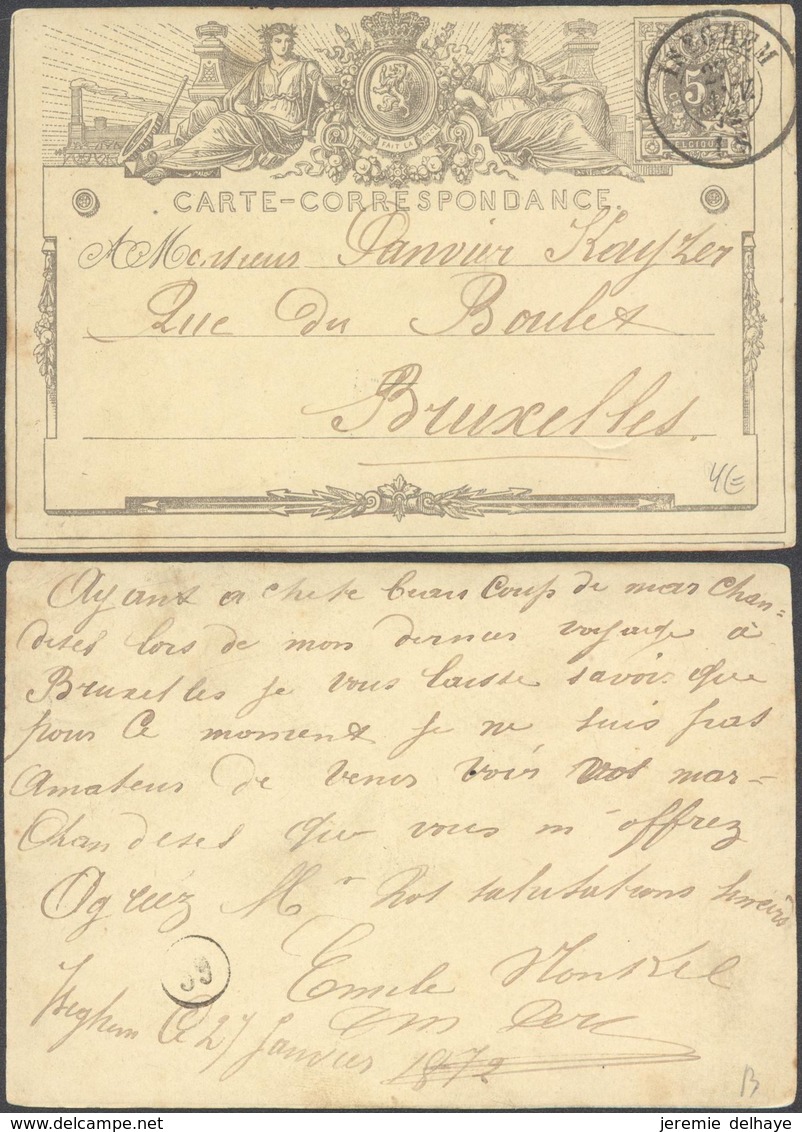 FAIT LA
ISEGHEM
5
CARTE-CORRESPONDANCE.
A Monsieur Janvier Kayzer
Rue du Boulet
Bruxelles.
Ayant a chete beau Coup de mar chan=
dises lors de mon dernier voyage à
Bruxelles je vous laisse savoir que
pour Ce moment je ne suis pas
Amateur de venir voir vos mar=
Chandises que vous m'offrez
Agréez Mr nos salutations
Emile
Iseghem Ce 27 Janvier 1872
B
jeremie delhaye